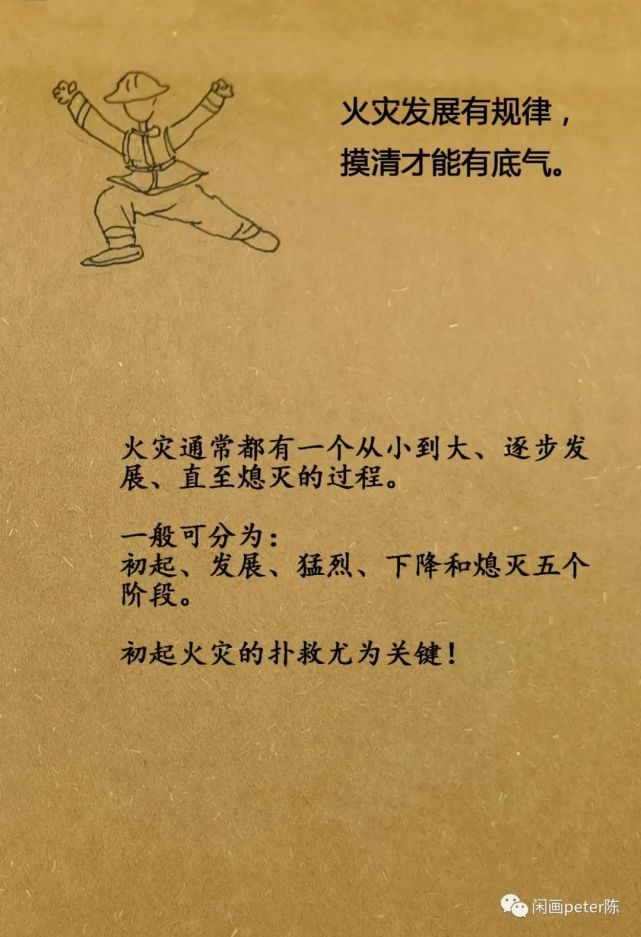 火灾发展有规律，
摸清才能有底气。
火灾通常都有一个从小到大、逐步发
展、直至熄灭的过程。
一般可分为：
初起、发展、猛烈、下降和熄灭五个
阶段。
初起火灾的扑救尤为关键！
闲画peter陈